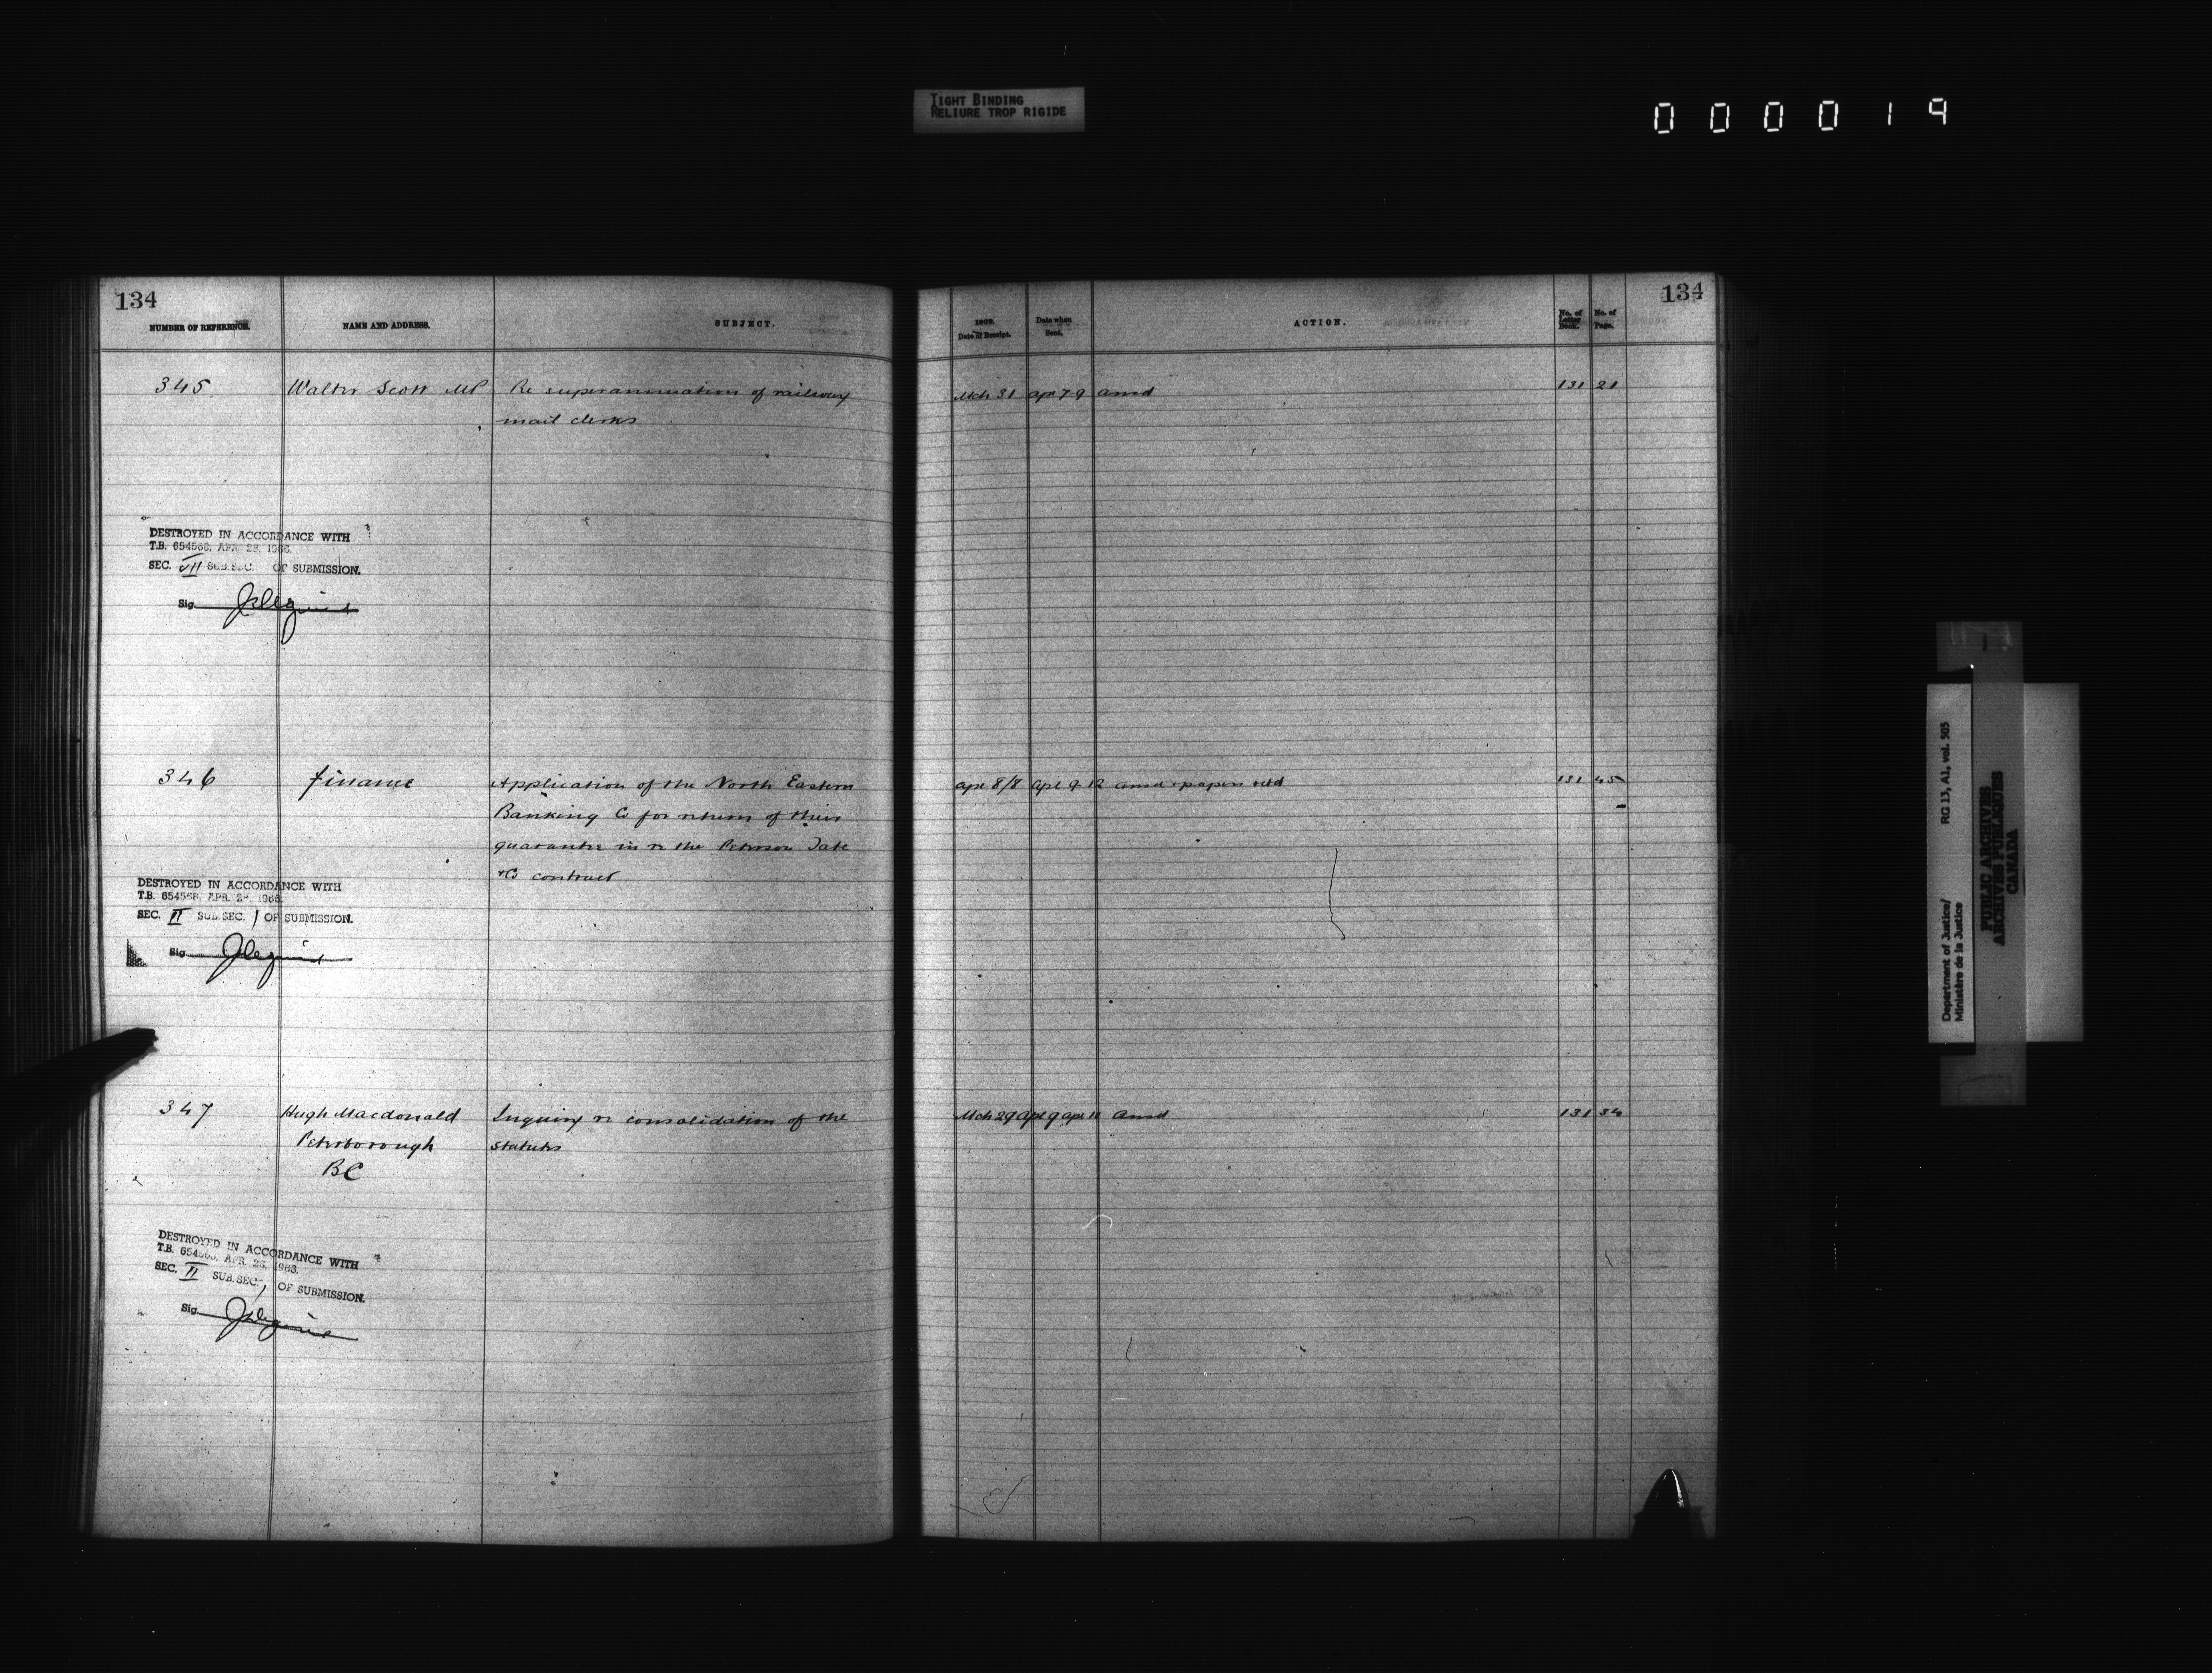 TIGHT BINDING
RELIURE TROP RIGIDE
000019
134
NUMBER OF REFERENCE.
NAME AND ADDRESS.
SUBJECT.
345
Walter Scott MP
Re superannuation of railway
mail clerks
DESTROYED IN ACCORDANCE WITH
T.B. 654568, APR. 28, 1966.
SEC. VII SUB.SEC. OF SUBMISSION.
Sig.
346
Finance
Application of the North Eastern
Banking Co for return of their
guarantee in re the Peterson Tate
+Co contract
DESTROYED IN ACCORDANCE WITH
T.B. 654568, APR. 28, 1966.
SEC. II SUB.SEC. 1 OF SUBMISSION.
Sig.
347
Hugh Macdonald
Peterborough
BC
Inquiry re consolidation of the
statutes
DESTROYED IN ACCORDANCE WITH
T.B. 654568, APR. 28, 1966.
SEC. II SUB.SEC. 1 OF SUBMISSION.
Sig.
134
Date of Receipt.
Date when
Sent.
ACTION.
No. of
Letter
Book.
No. of
Page.
Mch 31 Apl 7 9 Ansd 131 21
Apl 8/8 Apl 9 12 Ansd + papers retd 131 45
Mch 29 Apl 9 Apl 11 Ansd 131 34
Department of Justice/
Ministère de la Justice
RG 13, A1, vol. 505
PUBLIC ARCHIVES
ARCHIVES PUBLIQUES
CANADA